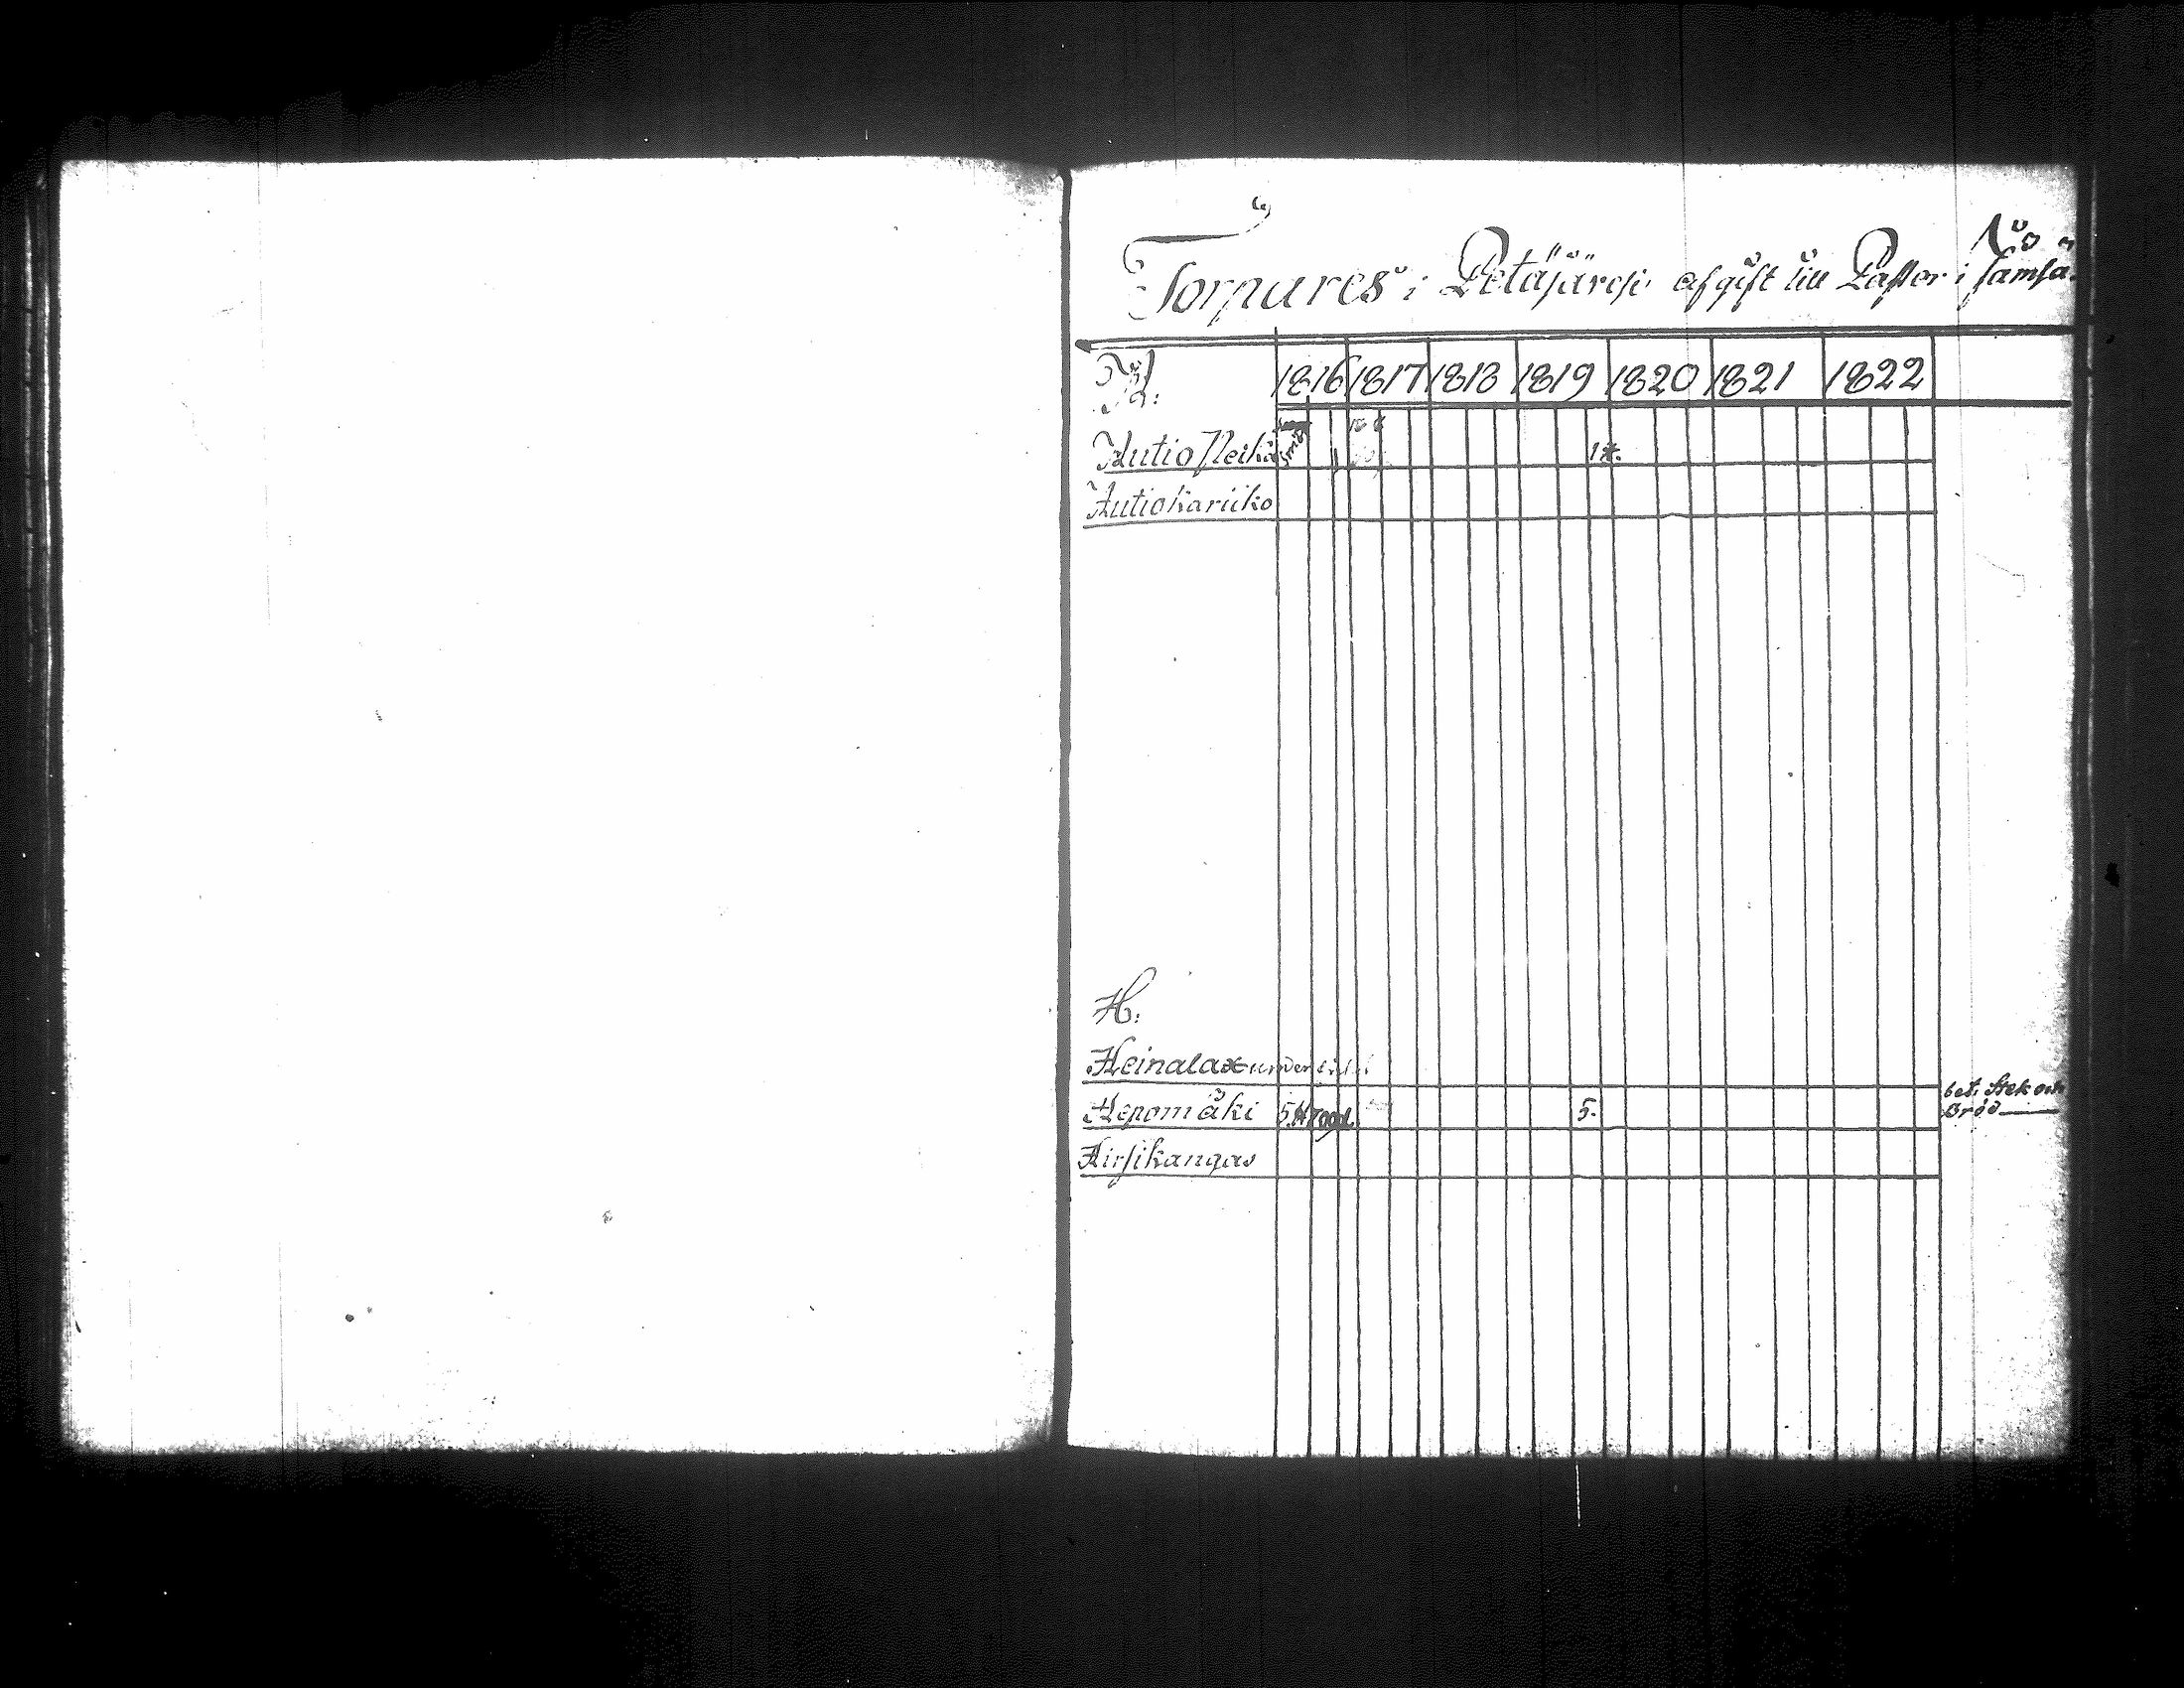 Torpares i Petäjäresi afgift till Pastor i Jämsä.
A.
1816 1817 1818 1819 1820 1821 1822
Autio Heikå
1 #.
Autiokariko
H.
Heinalax under
Hepomäki 5. # 5.
bet. Stek och
Bröd
Hirsikangas